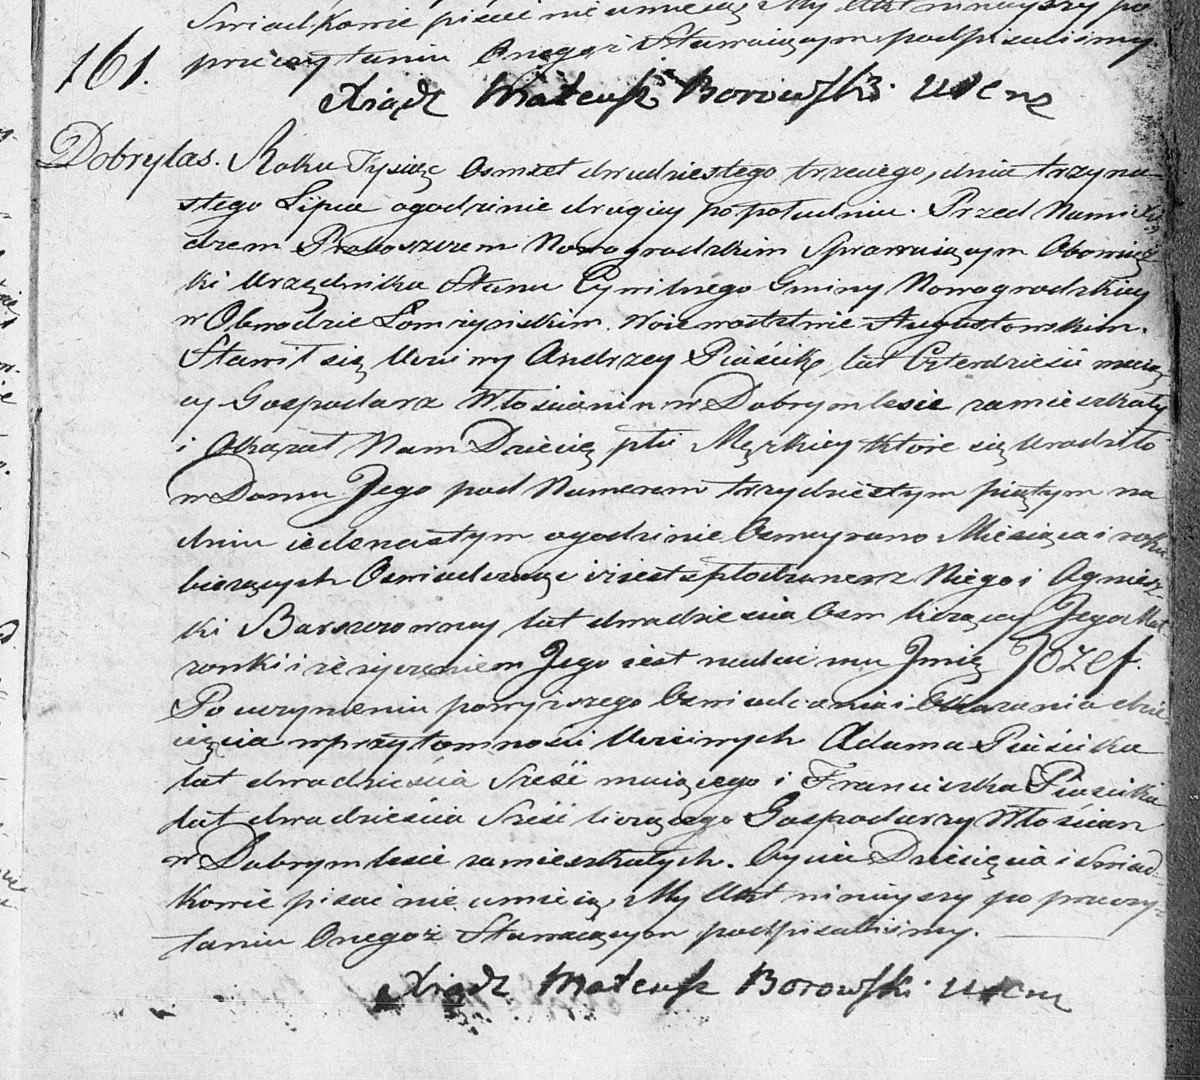 Swiadkowie pisać nie umieią, My Akt ninieyszy po
przeczytaniu Onegoż Stawaiącym podpisaliśmy.
161.
Xiądz Mateusz Borowski
Dobrylas. Roku Tysiąc Osmset dwudziestego trzeciego, dnia trzyna
stego Lipca ogodzinie drugiey popołudniu. Przed Nami Xię
dzem Proboszczem Nowogrodzkim Sprawuiącym Obowiąz
ki Urzędnika Stanu Cywilnego Gminy Nowogrodzkiey
w Obwodzie Łomżyńskim. Woiewodztwie Augustowskim.
Stawił się Uczciwy Andrzey Pieścik, lat Czterdzieści maią
cy Gospodarz Włościanin w Dobrymlesie zamieszkały
i Okazał Nam Dziecię płci Męzkiey które się urodziło
w Domu Jego pod Numerem trzydziestym piątym na
dniu iedenastym ogodzinie Osmey rano Miesiąca i roku
bieżących Oswiadczaiąc iż iest spłodzone z Niego i Agniesz
ki Barszczowney lat dwadzieścia Osm liczącey Jego Mał
żonki i że życzeniem Jego iest nadać mu Jmię Józef.
Po uczynieniu powyższego Oswiadczenia i Okazania dzie
cięcia w przytomności Uczciwych Adama Pieścika
lat dwadzieścia Sześć maiącego i Franciszka Pieścika
lat dwadzieścia Sześć liczącego Gospodarzy Włościan
w Dobrymlesie zamieszkałych. Oyciec Dziecięcia i Swiad-
kowie pisać nie umieią, My Akt ninieyszy po przeczy-
taniu Onegoż Stawaiącym podpisaliśmy.
Xiądz Mateusz Borowski